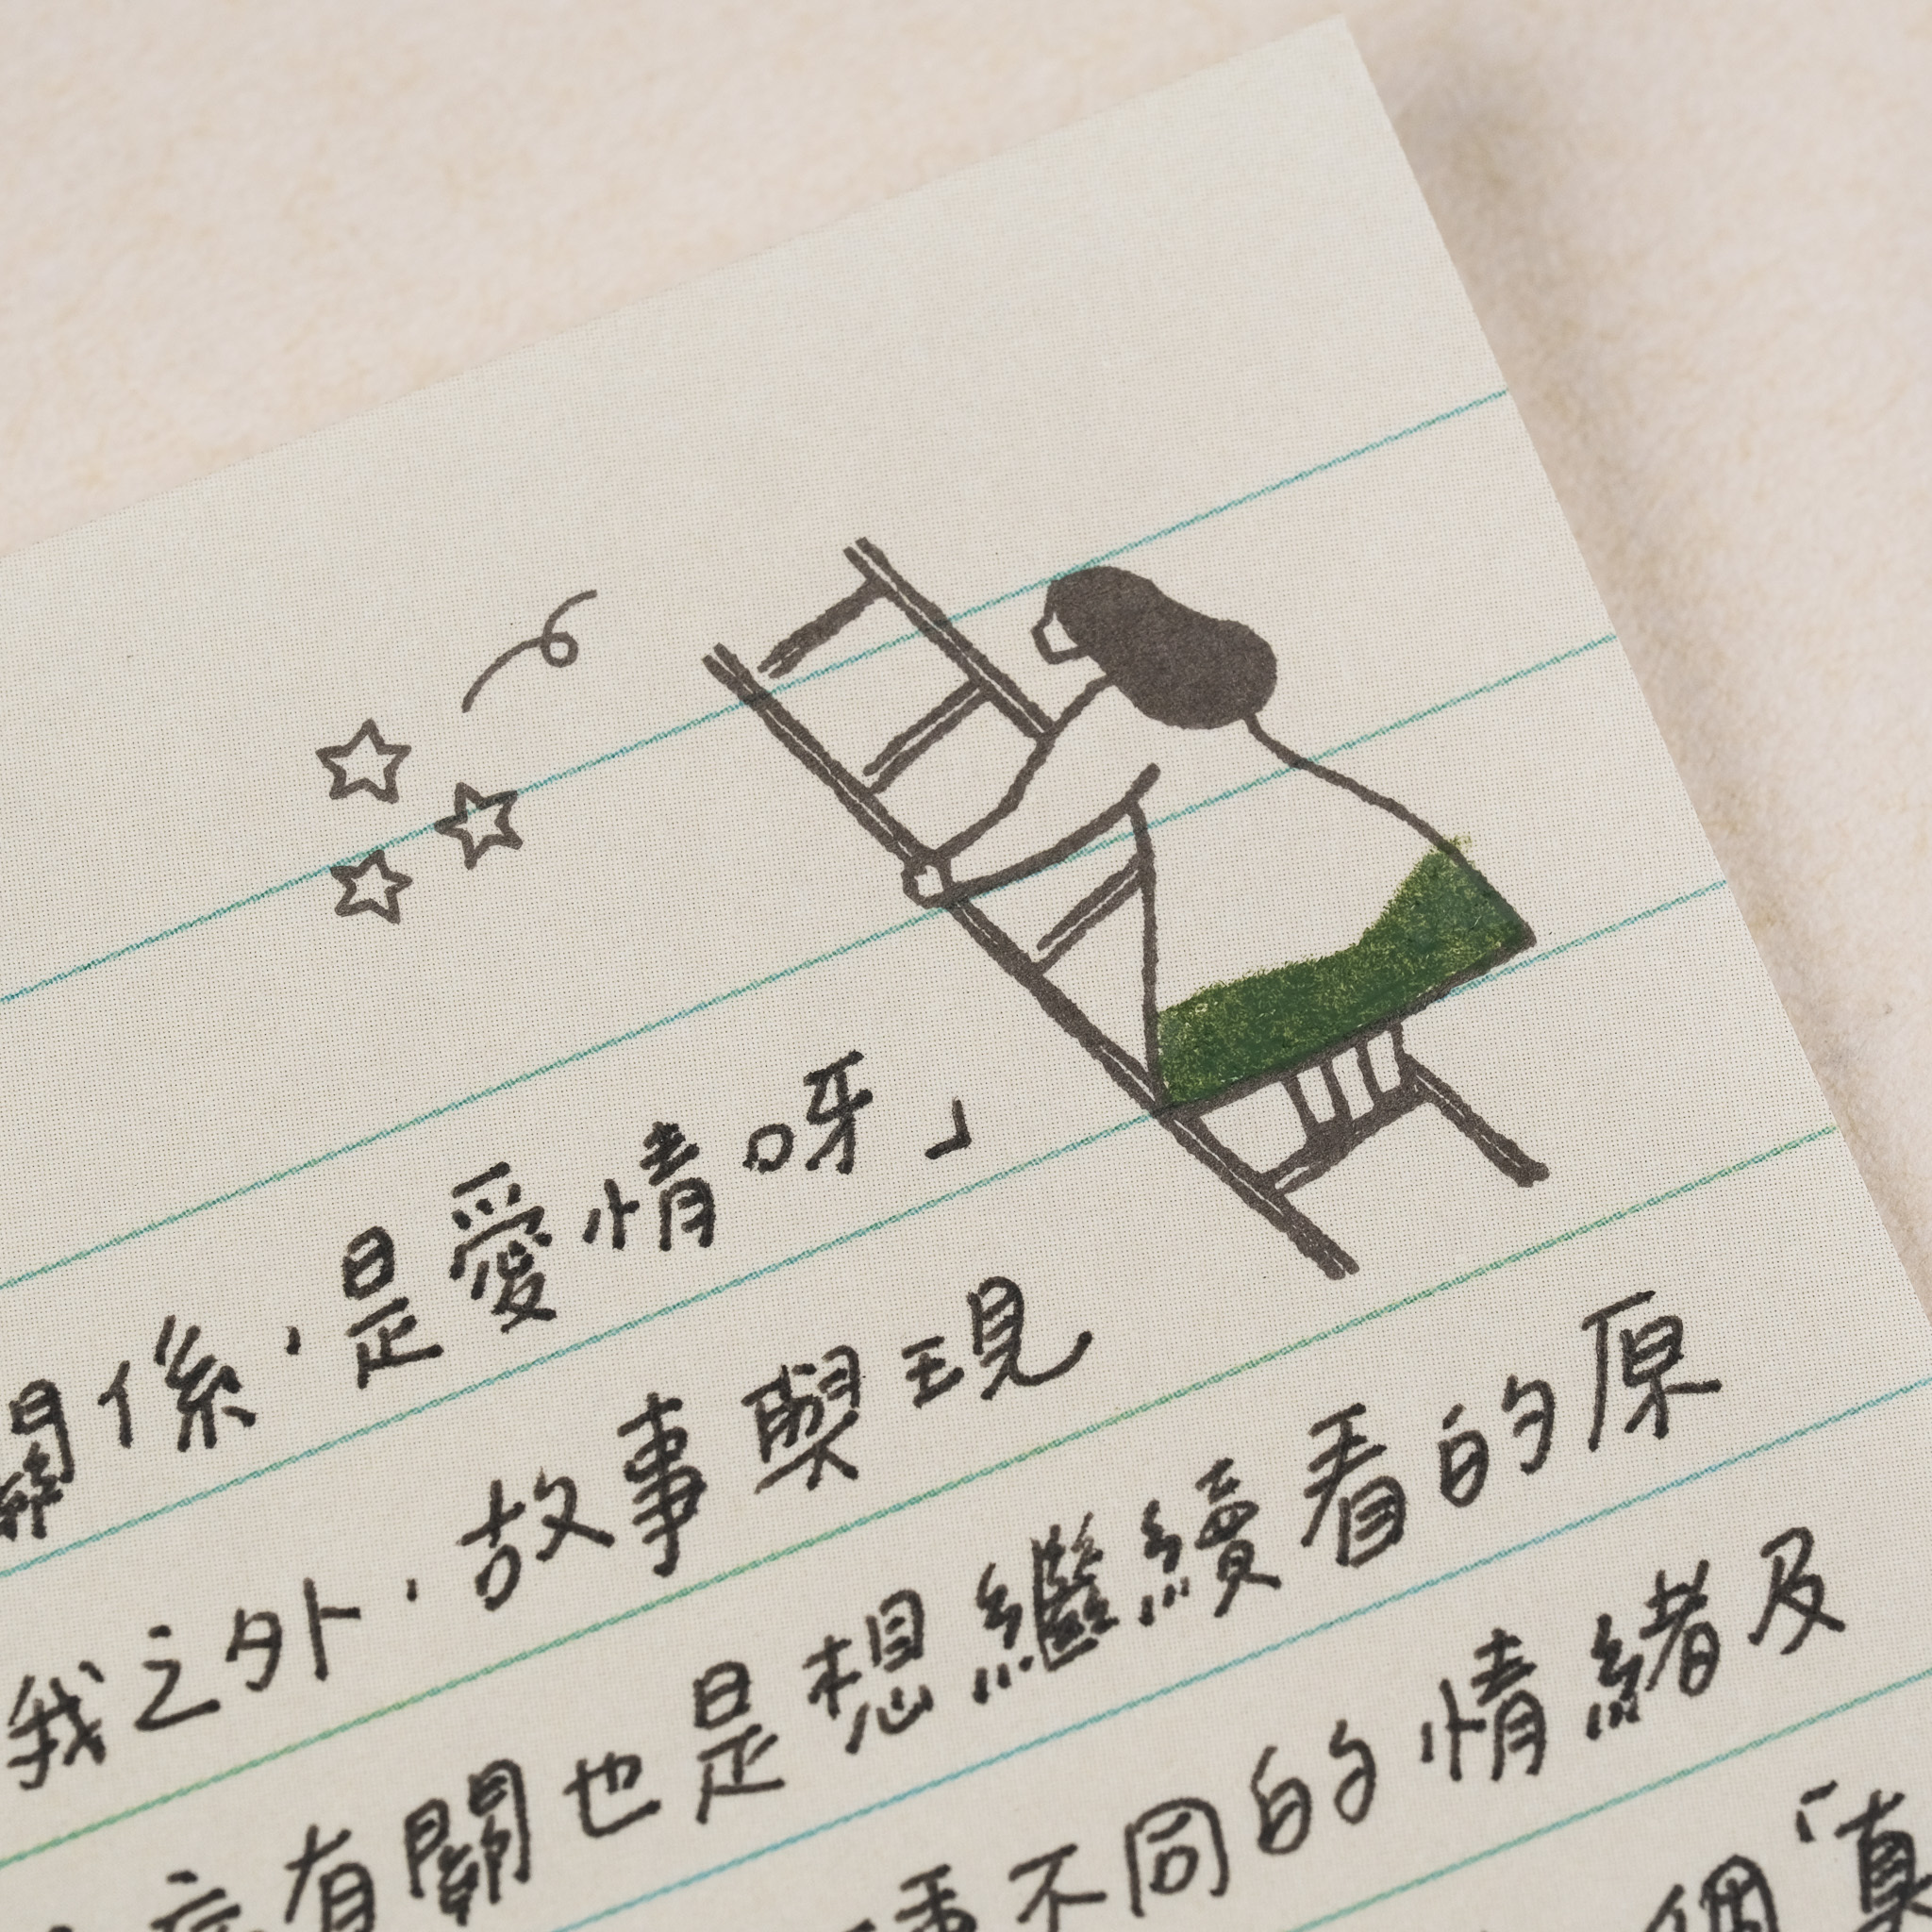 關係，是愛情呀」
我之外，故事與現
有關也是想繼續看的原
不同的情緒及
個「真